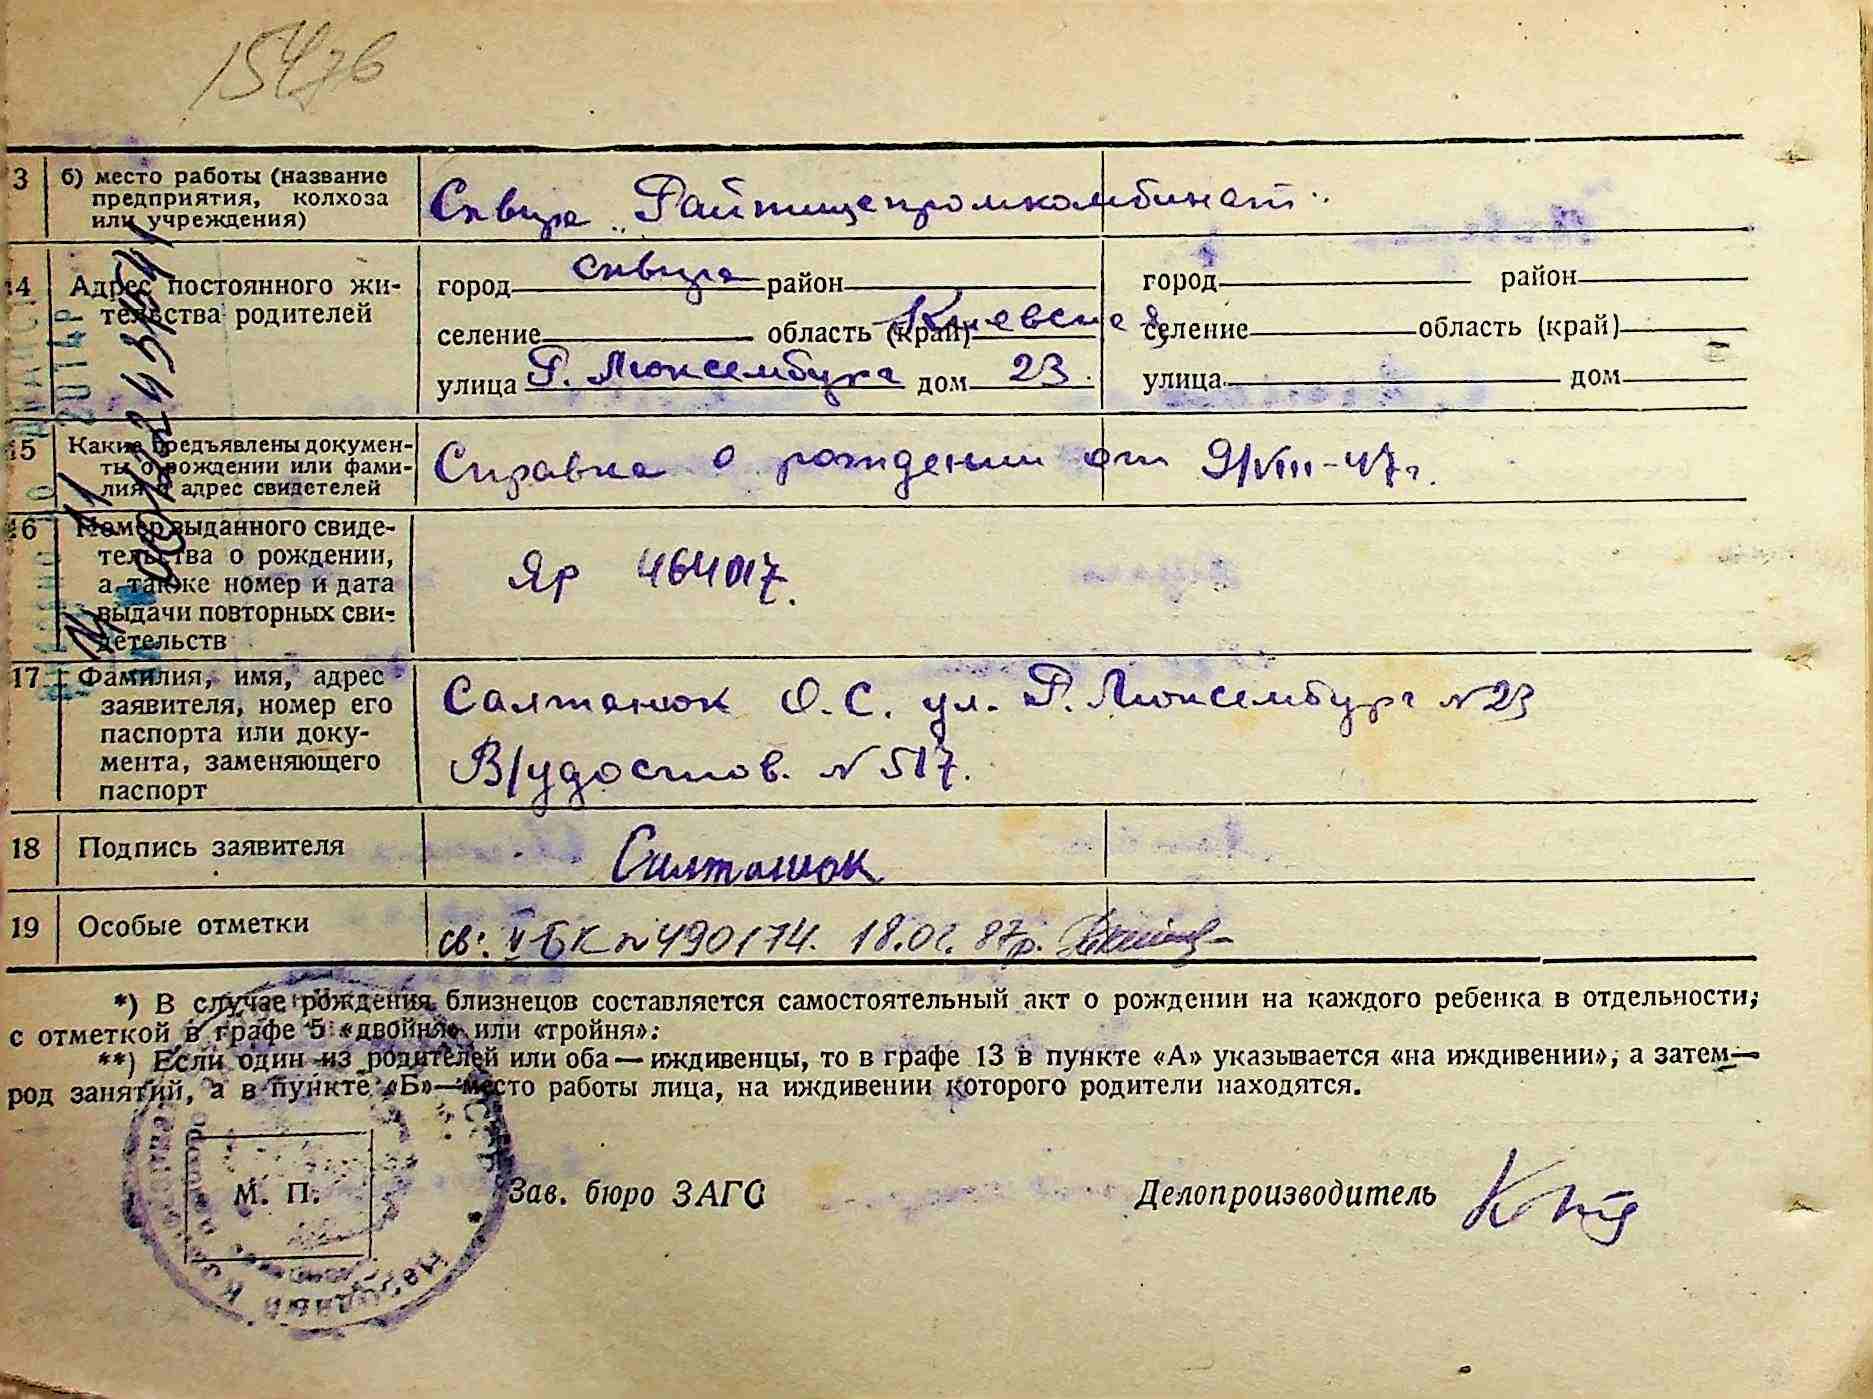 3 б) место работы (название
предприятия, колхоза
или учреждения)
Сквира „Райпищепромкомбинат"
14 Адрес постоянного жи-
тельства родителей
город Сквира район
селение область (край) Киевская
улица Р. Люксембург дом 23.
город район
селение область (край)
улица дом
15 Какие предъявлены докумен-
ты о рождении или фами-
лия и адрес свидетелей
Справка о рождении от 9/VIII-47г.
16 Номер выданного свиде-
тельства о рождении,
а также номер и дата
выдачи повторных сви-
детельств
Яр 464017.
17 Фамилия, имя, адрес
заявителя, номер его
паспорта или доку-
мента, заменяющего
паспорт
Салтанюк О.С. ул. Р. Люксембург N 23
В/удостов. N 517.
18 Подпись заявителя
Салтанюк
19 Особые отметки
св: V-БК N 490174. 18.02.87р.
*) В случае рождения близнецов составляется самостоятельный акт о рождении на каждого ребенка в отдельности,
с отметкой в графе 5 «двойня» или «тройня».
**) Если один из родителей или оба — иждивенцы, то в графе 13 в пункте «А» указывается «на иждивении», а затем —
род занятий, а в пункте «Б»—место работы лица, на иждивении которого родители находятся.
М. П.
Зав. бюро ЗАГС
Делопроизводитель